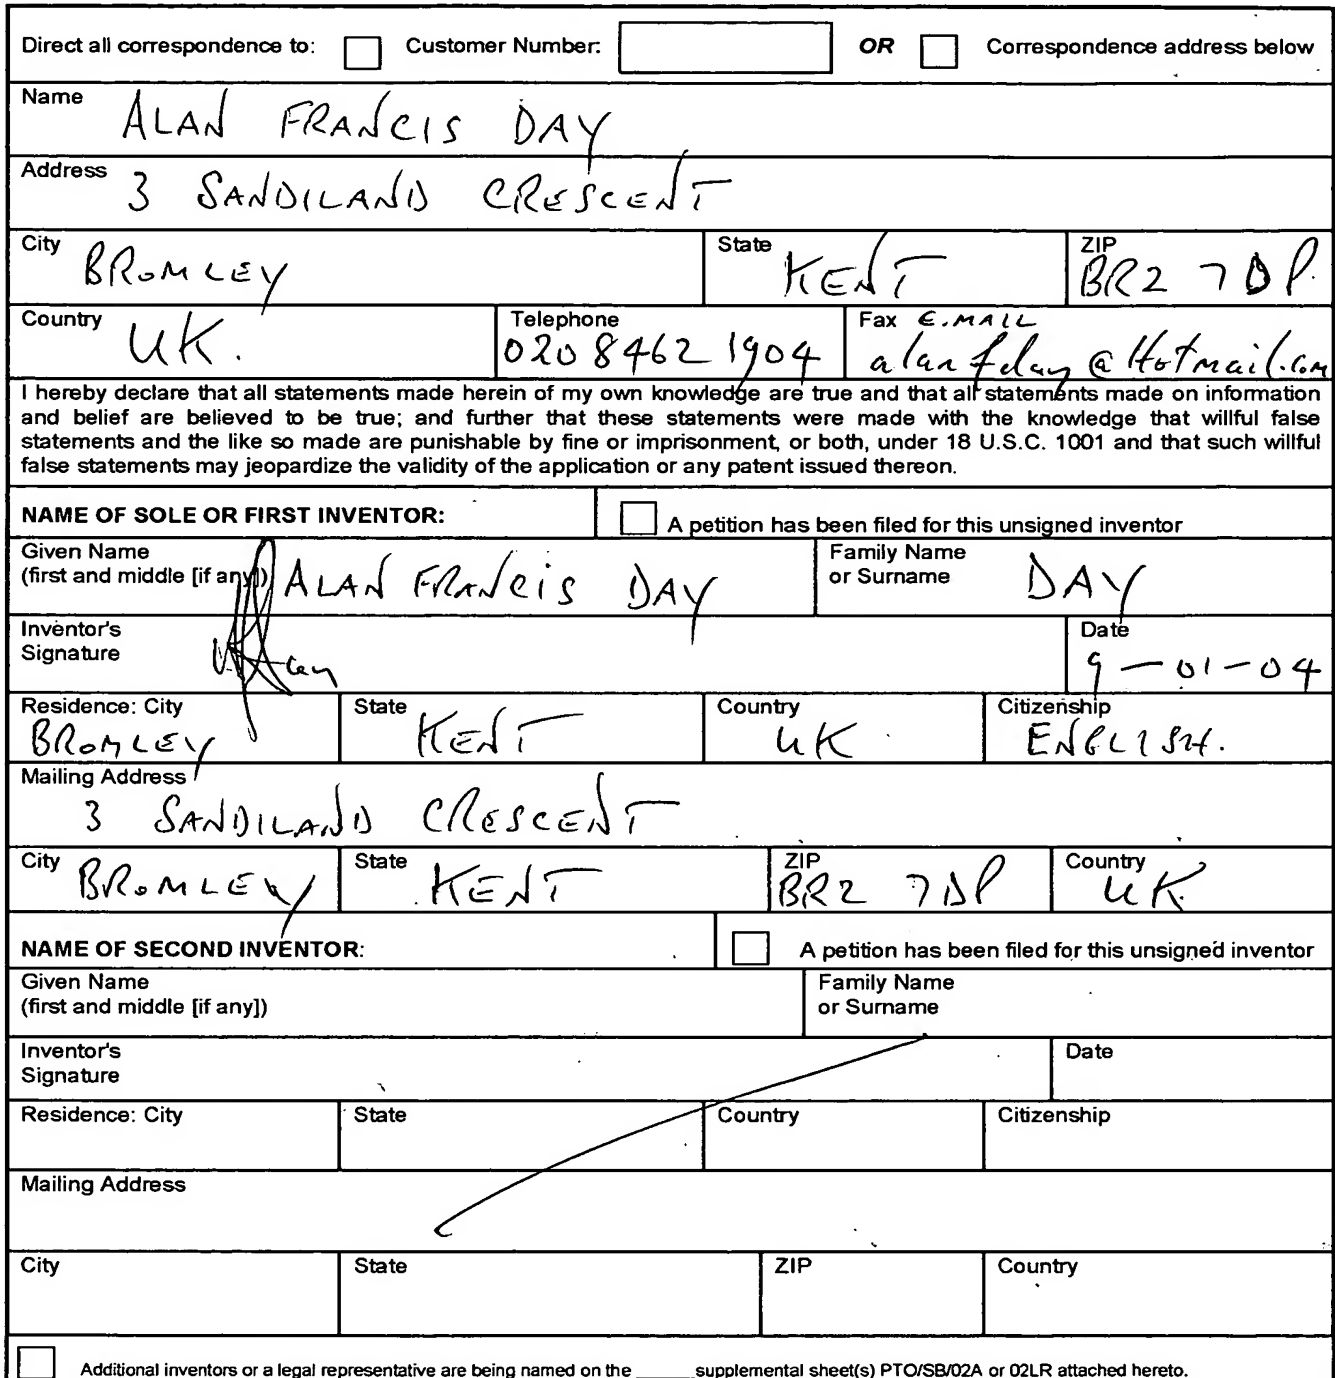 Direct all correspondence to: Customer Number: OR Correspondence address below
Name ALAN FRANCIS DAY
Address 3 SANDILAND CRESCENT
City BROMLEY State KENT ZIP BR2 7DP.
Country UK. Telephone 020 8462 1904 Fax E.MAIL alanfday@Hotmail.com
I hereby declare that all statements made herein of my own knowledge are true and that all statements made on information
and belief are believed to be true; and further that these statements were made with the knowledge that willful false
statements and the like so made are punishable by fine or imprisonment, or both, under 18 U.S.C. 1001 and that such willful
false statements may jeopardize the validity of the application or any patent issued thereon.
NAME OF SOLE OR FIRST INVENTOR: A petition has been filed for this unsigned inventor
Given Name Family Name
(first and middle [if any]) ALAN FRANCIS DAY or Surname DAY
Inventor's Date
Signature 9-01-04
Residence: City BROMLEY State KENT Country UK. Citizenship ENGLISH.
Mailing Address
3 SANDILAND CRESCENT
City BROMLEY State KENT ZIP BR2 7DP Country UK
NAME OF SECOND INVENTOR: A petition has been filed for this unsigned inventor
Given Name Family Name
(first and middle [if any]) or Surname
Inventor's Date
Signature
Residence: City State Country Citizenship
Mailing Address
City State ZIP Country
Additional inventors or a legal representative are being named on the ______ supplemental sheet(s) PTO/SB/02A or 02LR attached hereto.